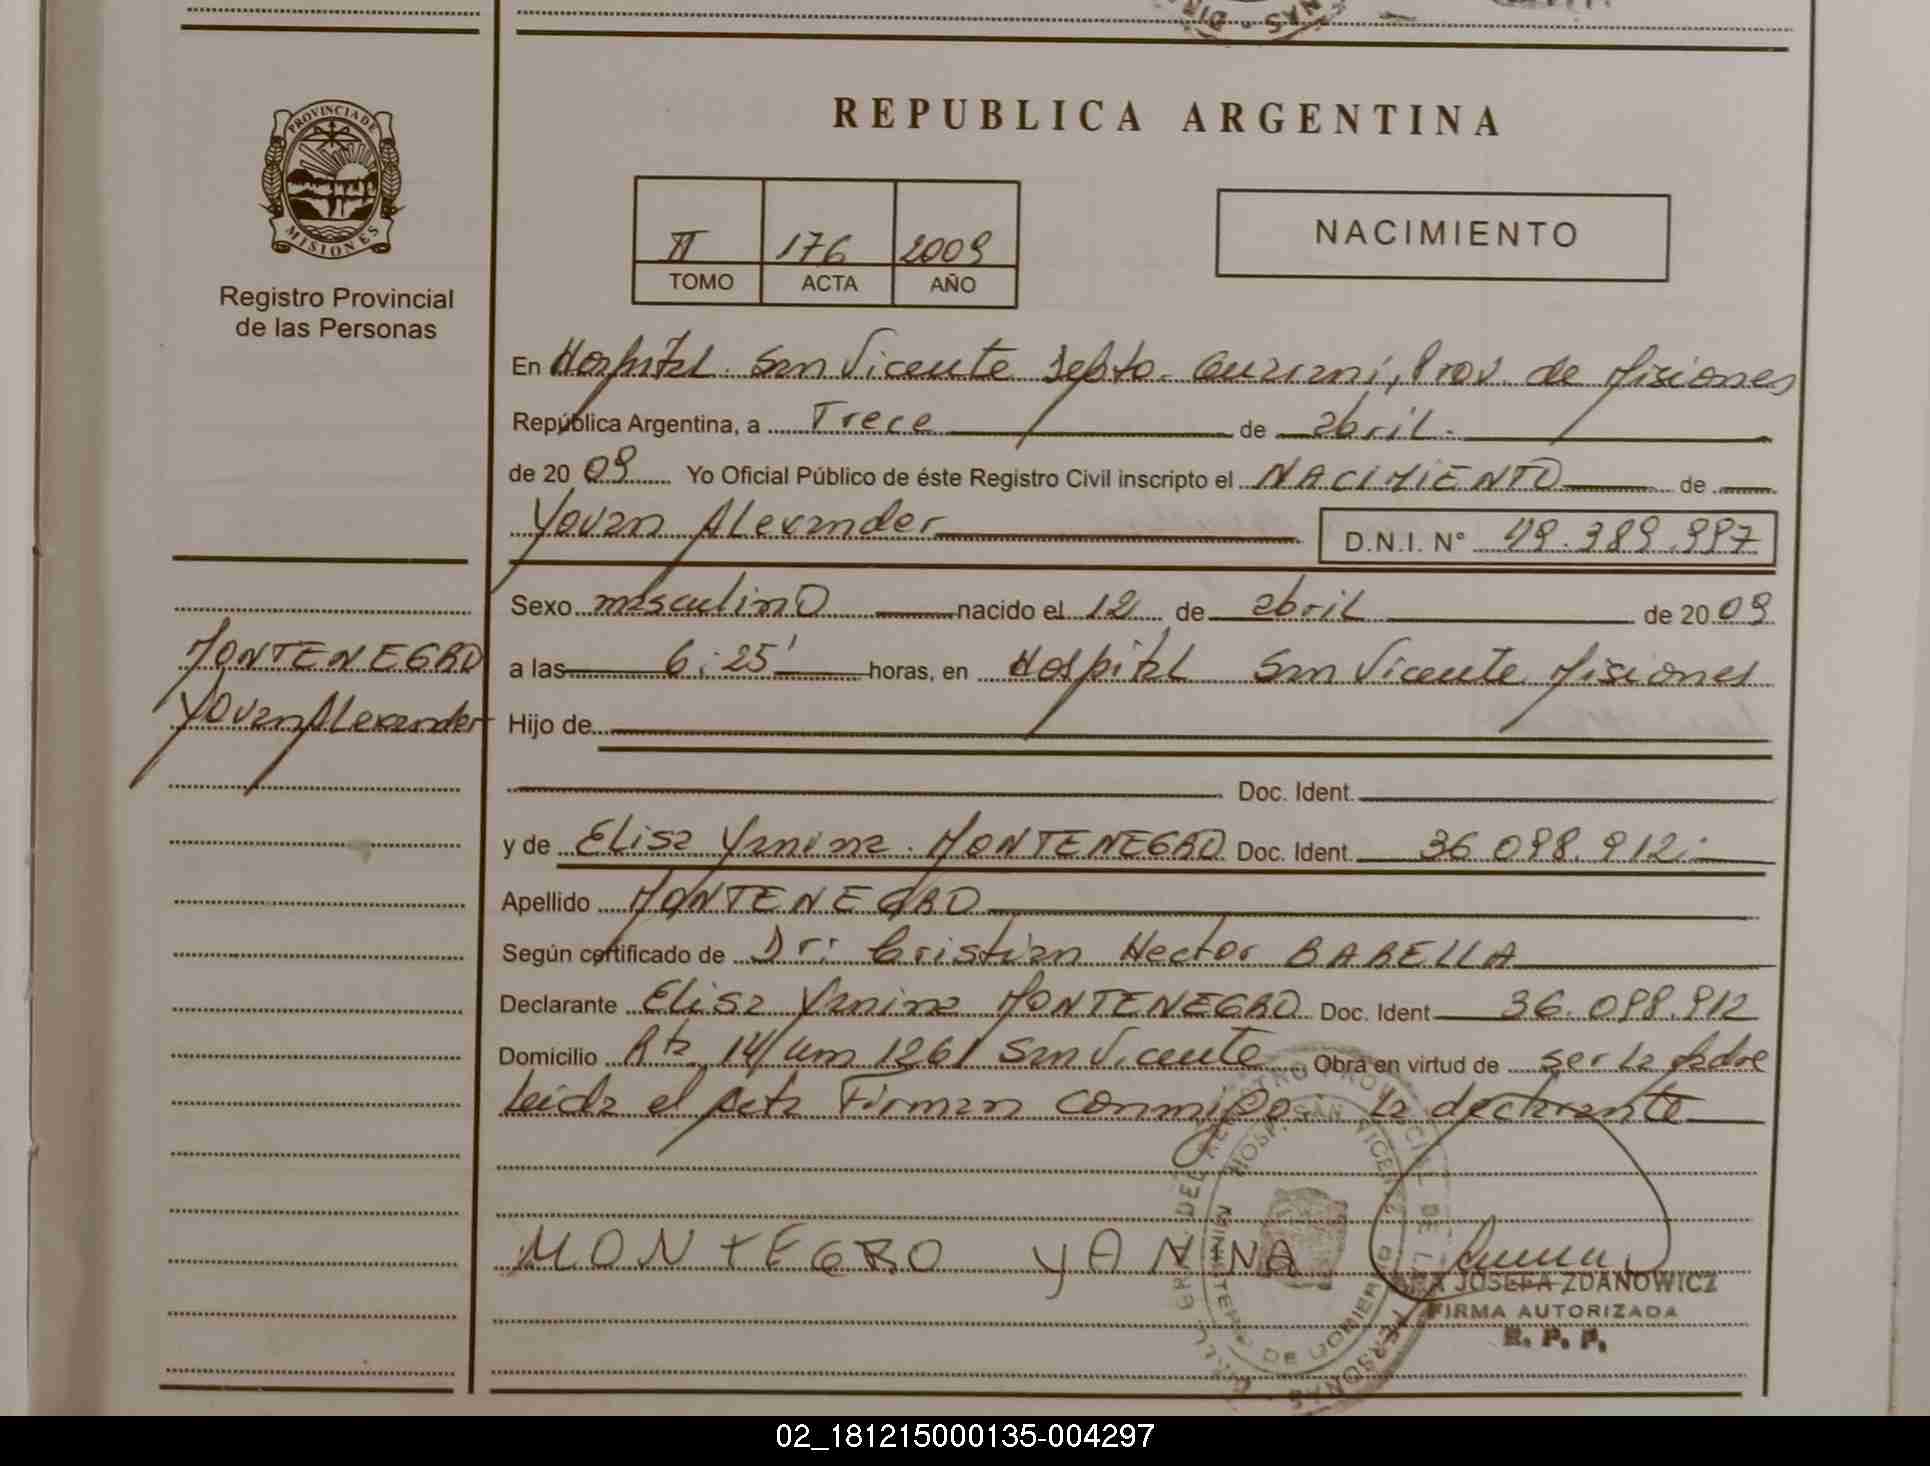 REPUBLICA ARGENTINA
PROVINCIA DE
MISIONES
Registro Provincial
de las Personas
II 176 2009
TOMO ACTA AÑO
NACIMIENTO
En Hospital San Vicente Depto. Guarani, Prov. de Misiones
República Argentina, a Trece de abril.
de 2009 Yo Oficial Público de éste Registro Civil inscripto el NACIMIENTO de
Yovan Alexander D.N.I. N° 49.389.997
Sexo masculino nacido el 12 de abril de 2009
MONTENEGRO
Yovan Alexander
a las 6:25' horas, en Hospital San Vicente Misiones
Hijo de
Doc. Ident.
y de Elisa Yanina MONTENEGRO Doc. Ident. 36.098.912.-
Apellido MONTENEGRO
Según certificado de Dr: Cristian Hector BARELLA
Declarante Elisa Yanina MONTENEGRO Doc. Ident 36.098.912
Domicilio Rta 14/Km 1261 San Vicente Obra en virtud de ser la Madre
Leida el Acta Firman conmigo: la declarante
MONTEGRO YANINA
JOSEFA ZDANOWICZ
FIRMA AUTORIZADA
R. P. P.
02_181215000135-004297